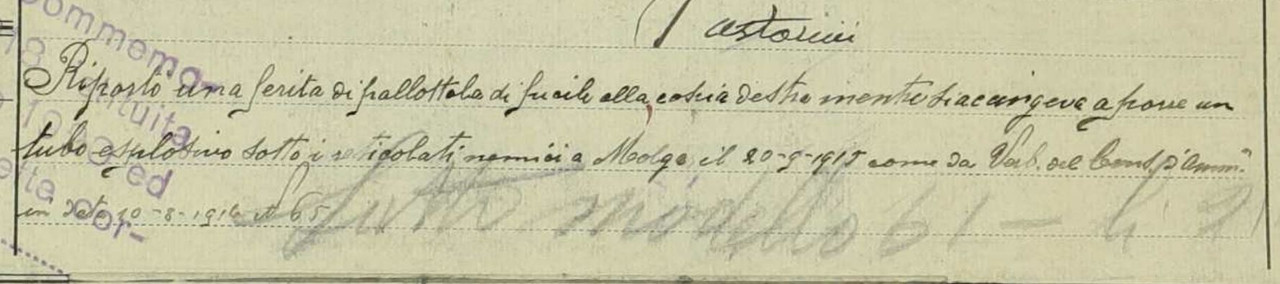 Pastorini
Riportò una ferita di pallottola di fucile alla coscia destra mentre si accingeva a porre un
tubo esplosivo sotto i reticolati nemici a il 20-9-1915 come da Verb. del Cons. d'Amm.
in data 10-8-1916 N 65
Fatto modello 61 -
Commemo-
18
ituita
ed
cor-